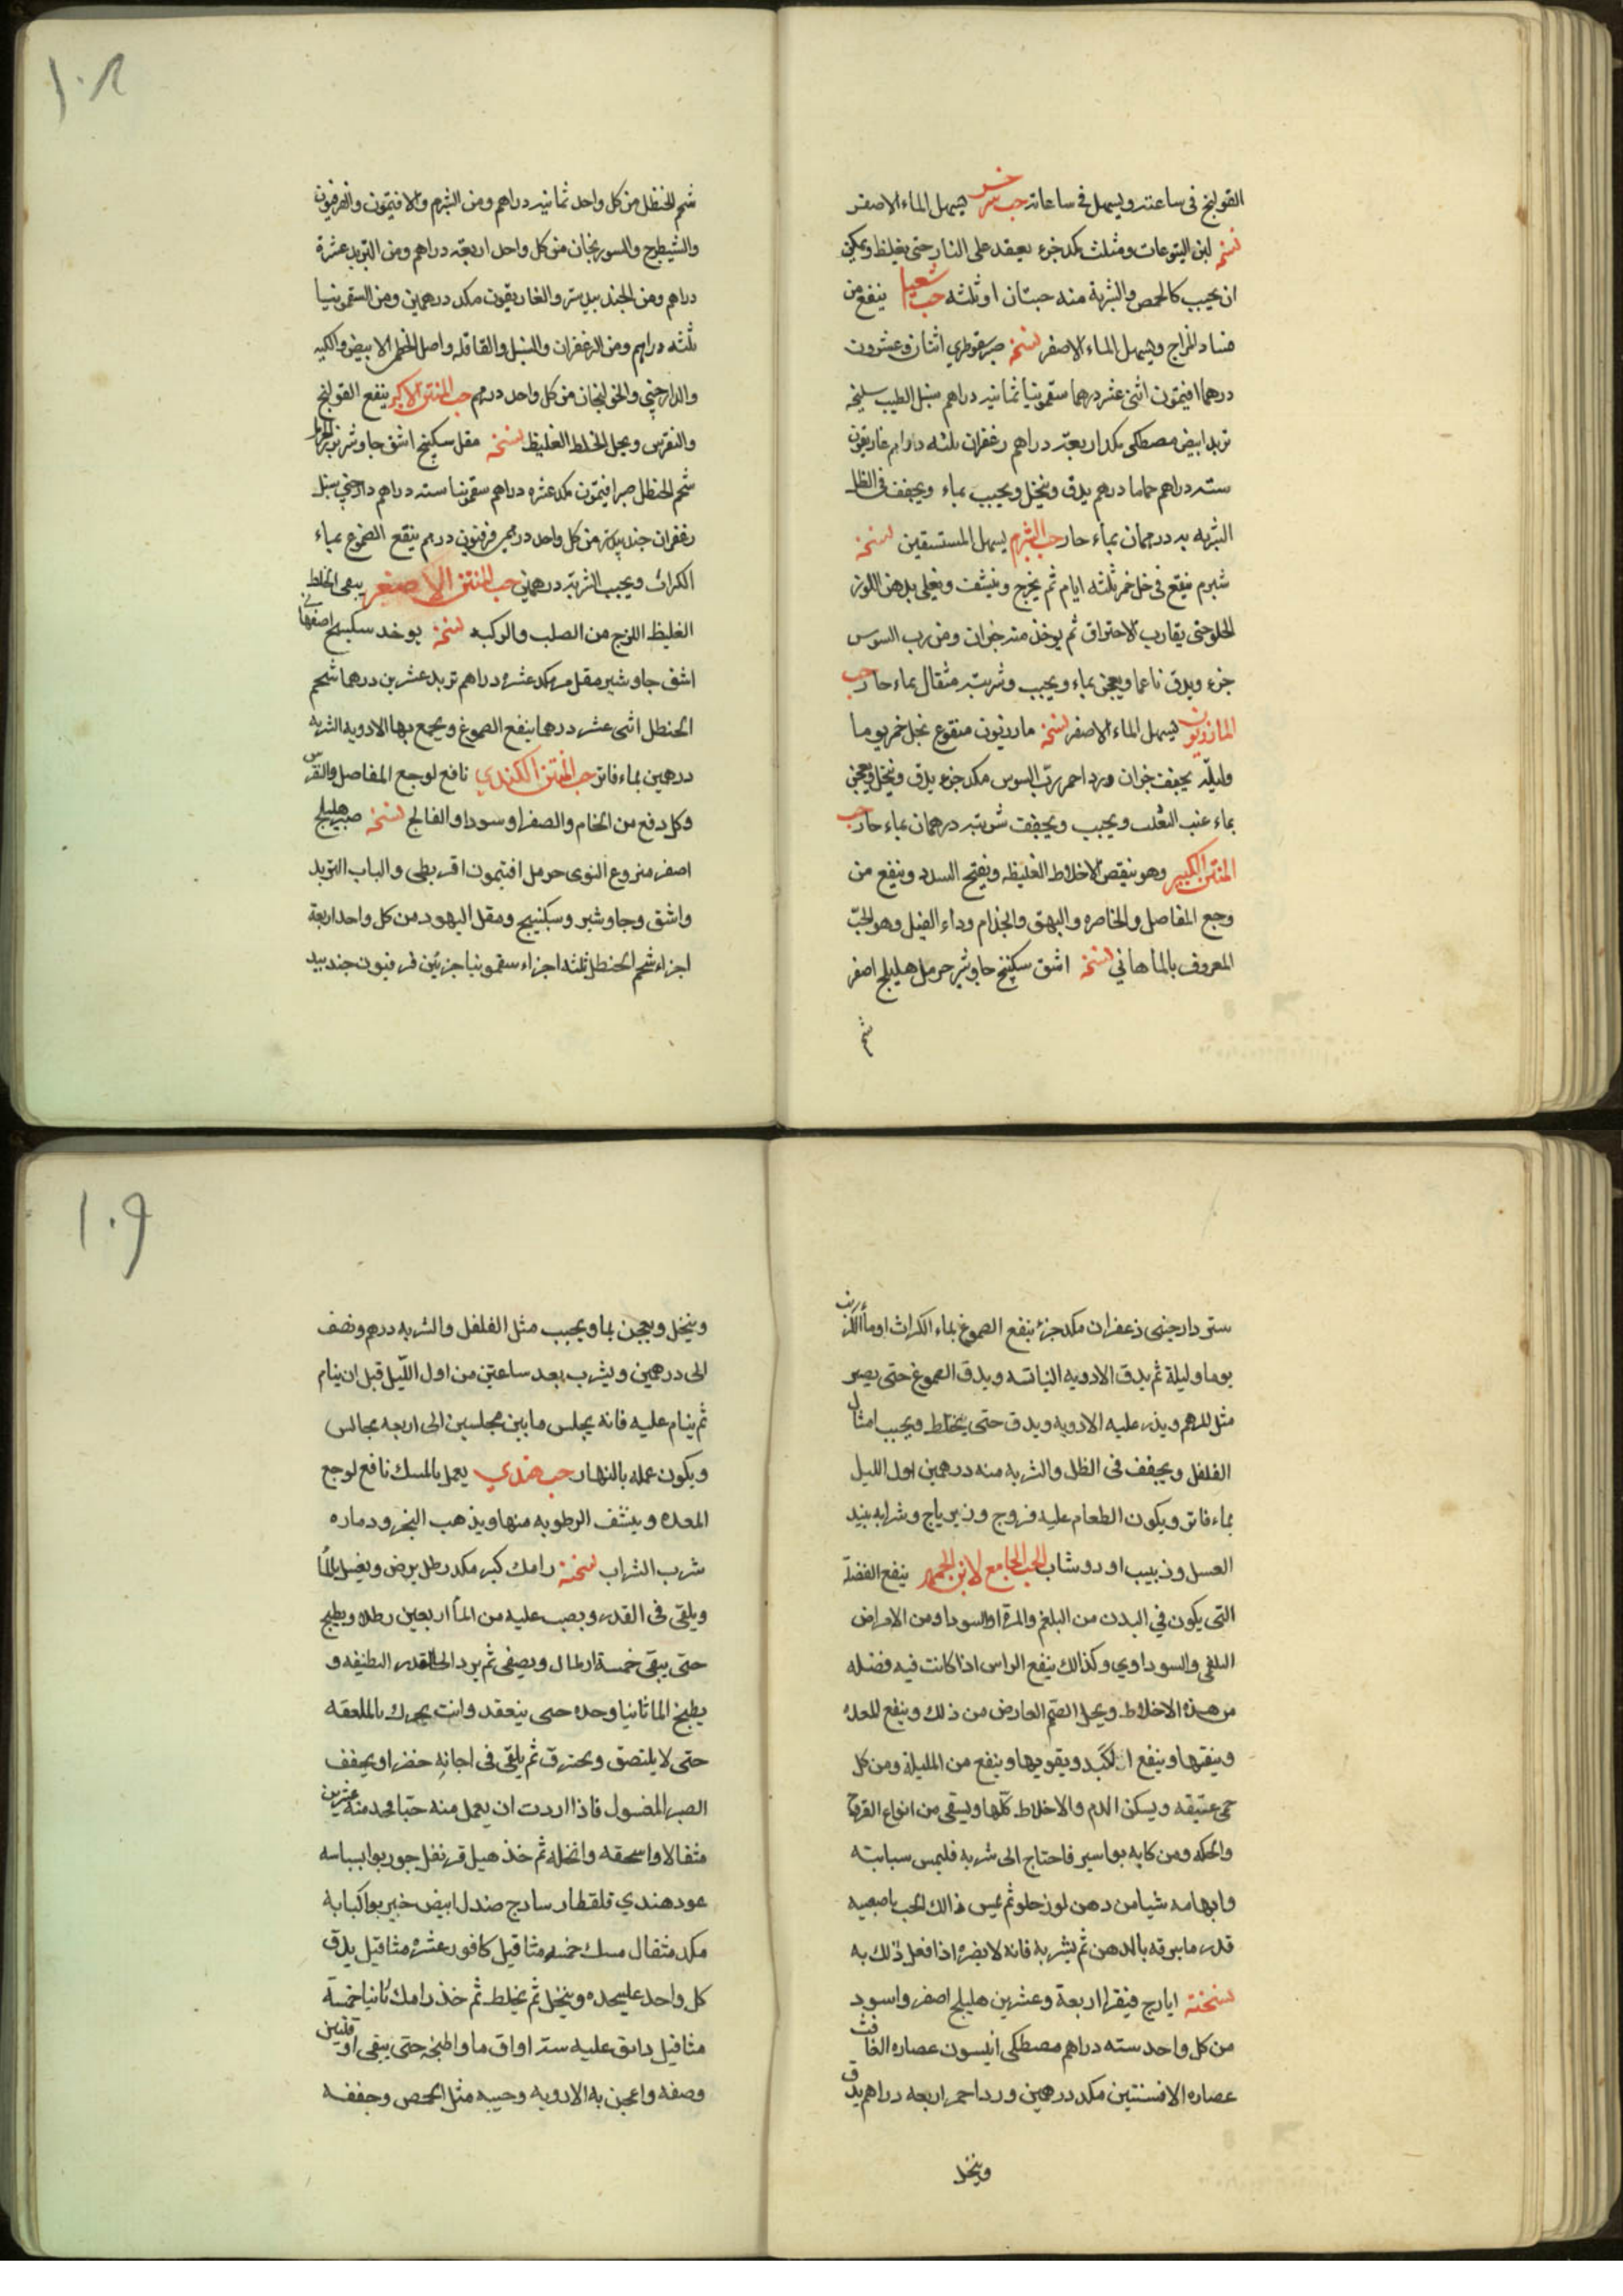 القولنج فى ساعته ويسهل فى ساعاته حب اخر يسهل الماء الاصفر
نسخته لبن اليتوعات ومثلث مكد جزء يعقد على النار حتى يغلظ ويمكن
ان يحبب كالحمص والشربة منه حبتان او ثلثه حب شعيا ينفع من
فساد المزاج ويسهل الماء الاصفر نسخته صبر سقوطري اثنان وعشرون
درهما افيمون اثنى عشر درهما سقمونيا ثمانيه دراهم سنبل الطيب سليخه
تربد ابيض مصطكى مكد اربعة دراهم زعفران ثلثه دراهم غاريقون
سته دراهم حماما درهم يدق وينخل ويحبب بماء ويجفف فى الظل
الشربه درهمان بماء حار حب الشبرم يسهل المستسقين نسخته
شبرم ينقع فى خل خمر ثلثه ايام ثم يخرج وينشف ويغلى بدهن اللوز
الحلو حتى يقارب الاحتراق ثم يوخذ منه جزوان ومن رب السوس
جزء ويدق ناعما ويعجن بماء ويحبب وشربته مثقال بماء حار حب
المازريون يسهل الماء الاصفر نسخته مازريون منقوع بخل خمر يوما
وليلة يجفف جزان ورد احمر رب السوس مكد جزء يدق وينخل ويعجن
بماء عنب الثعلب ويحبب ويجفف شربته درهمان بماء حار حب
المنتن الكبير وهو ينقص الاخلاط الغليظه ويفتح السدد وينفع من
وجع المفاصل والخاصره والبهق والجذام وداء الفيل وهو الحب
المعروف بالماهاني نسخته اشق سكبنج جاوشير حرمل هليلج اصفر
شحم
١٠٨
شحم الحنظل من كل واحد ثمانيه دراهم ومن الشبرم والافتيمون والفرفيون
والشيطرج والسورنجان من كل واحد اربعة دراهم ومن التربد عشرة
دراهم ومن الجندبيدستر والغاريقون مكد درهمين ومن السقمونيا
ثلثه دراهم ومن الزعفران والسنبل والقاقله واصل الابيض والكيه
والدارچيني والخولنجان من كل واحد درهم حب المنتن الاكبر ينفع القولنج
والنقرس ويحل الخلط الغليظ نسخته مقل سكبنج اشق جاوشير بزر الحرمل
شحم الحنظل صبر افيتمون مكد عشره دراهم سقمونيا سته دراهم دارچيني سنبل
زعفران جندبيدستر من كل واحد درهمين فرفيون درهم ينقع الصموغ بماء
الكراث ويحبب الشربة درهمين حب المنتن الاصغر ينقى الخلط
الغليظ اللزج من الصلب والوركبه نسخته يوخد سكبنج اصفهاني
اشق جاوشير مقل مكد عشره دراهم تربد عشرين درهما شحم
الحنطل اثنى عشر درهما ينفع الصموغ ويجمع بها الادويه الشربه
درهمين بماء فاتر حب المنتن الكندي نافع لوجع المفاصل والنقرس
وكل دفع من الخام والصفرا وسودا والفالج نسخته صبر هليلج
اصفر منزوع النوى حرمل افتيمون اقريطى والباب التربد
واشق وجاوشير وسكبنيج ومقل اليهود من كل واحد اربعة
اجزاء شحم الحنطل ثلثه اجزاء سقمونيا جزئين فرفيون جندبيد
ستر دارجينى زعفران مكد جزء ينفع الصموغ بماء الكراث او ماء الكرنب
يوما وليلة ثم يدق الادويه اليابسه ويدق الصموغ حتى يصير
مثل المرهم ويذر عليه الادويه ويدق حتى يختلط ويحبب امثال
الفلفل ويجفف فى الظل والشربه منه درهمين اول الليل
بماء فاتر ويكون الطعام عليه فروج وزيرباج وشرابه نبيد
العسل وزبيب او دوشاب الحب الجامع لابن الجهم ينفع الفضلة
التى يكون في البدن من البلغم والمرة او السودا ومن الامراض
البلغمى والسوداوي وكذالك ينفع الراس اذا كانت فيه فضله
من هذه الاخلاط ويحل الصمم العارض من ذلك وينفع للمعده
وينقيها وينفع الكبد ويقويها وينفع من المليلة ومن كل
حمى عتيقه ويسكن الدم والاخلاط كلّها ويسقى من انواع القروح
والحكه ومن كابه بواسير فاحتاج الى شربه فليمس سبابته
وابهامه شيا من دهن لوز حلو ثم يمس ذالك الحب باصبعيه
قدر ما يبرقه بالدهن ثم يشربه فانه لا يضره اذا فعل ذلك به
نسخته ايارج فيقرا اربعة وعشرين هليلج اصفر واسود
من كل واحد سته دراهم مصطكى انيسون عصاره الغافث
عصاره الافسنتين مكد درهمين ورد احمر اربعه دراهم يدق
وينخل
١٠٩
وينخل ويعجن بما ويحبب مثل الفلفل والشربه درهم ونصف
الى درهمين ويشرب بعد ساعتين من اول اللّيل قبل ان ينام
ثم ينام عليه فانه يجلس ما بين مجلسين الى اربعه مجالس
ويكون عمله بالنهار حب هندي يعمل بالمسك نافع لوجع
المعده وينشف الرطوبه منها ويذهب البخر ودماره
شرب الشراب نسخته رامك كبر مكد رطل يرض ويغسل بالماء
ويلقى فى القدر ويصب عليه من الماء اربعين رطلا ويطبخ
حتى يبقى خمسة ارطال ويصفى ثم يرد الى القدر النظيفه و
يطبخ الما ثانيا وحده حتى ينعقد وانت يحرك بالملعقه
حتى لا يلتصق ويحترق ثم يلقى فى اجانه حضرا ويجفف
الصبر المغسول فاذا اردت ان يعمل منه حبّا فخد منه عشرين
مثقالا واسحقه وانخله ثم خذ هيل قرنفل جوربوا بسباسه
عود هندي قلقطار سادج صندل ابيض خيربوا كبابه
مكد مثقال مسك خمسه مثاقيل كافور عشره مثاقيل يدق
كل واحد عليحده وينخل ثم يخلط ثم خذ رامك ثانيا خمسة
مثاقيل دانق عليه ستر اواق ما واطبخه حتى يبقى اوقيتين
وصفه واعجن به الادويه وحببه مثل الحمص وجففه